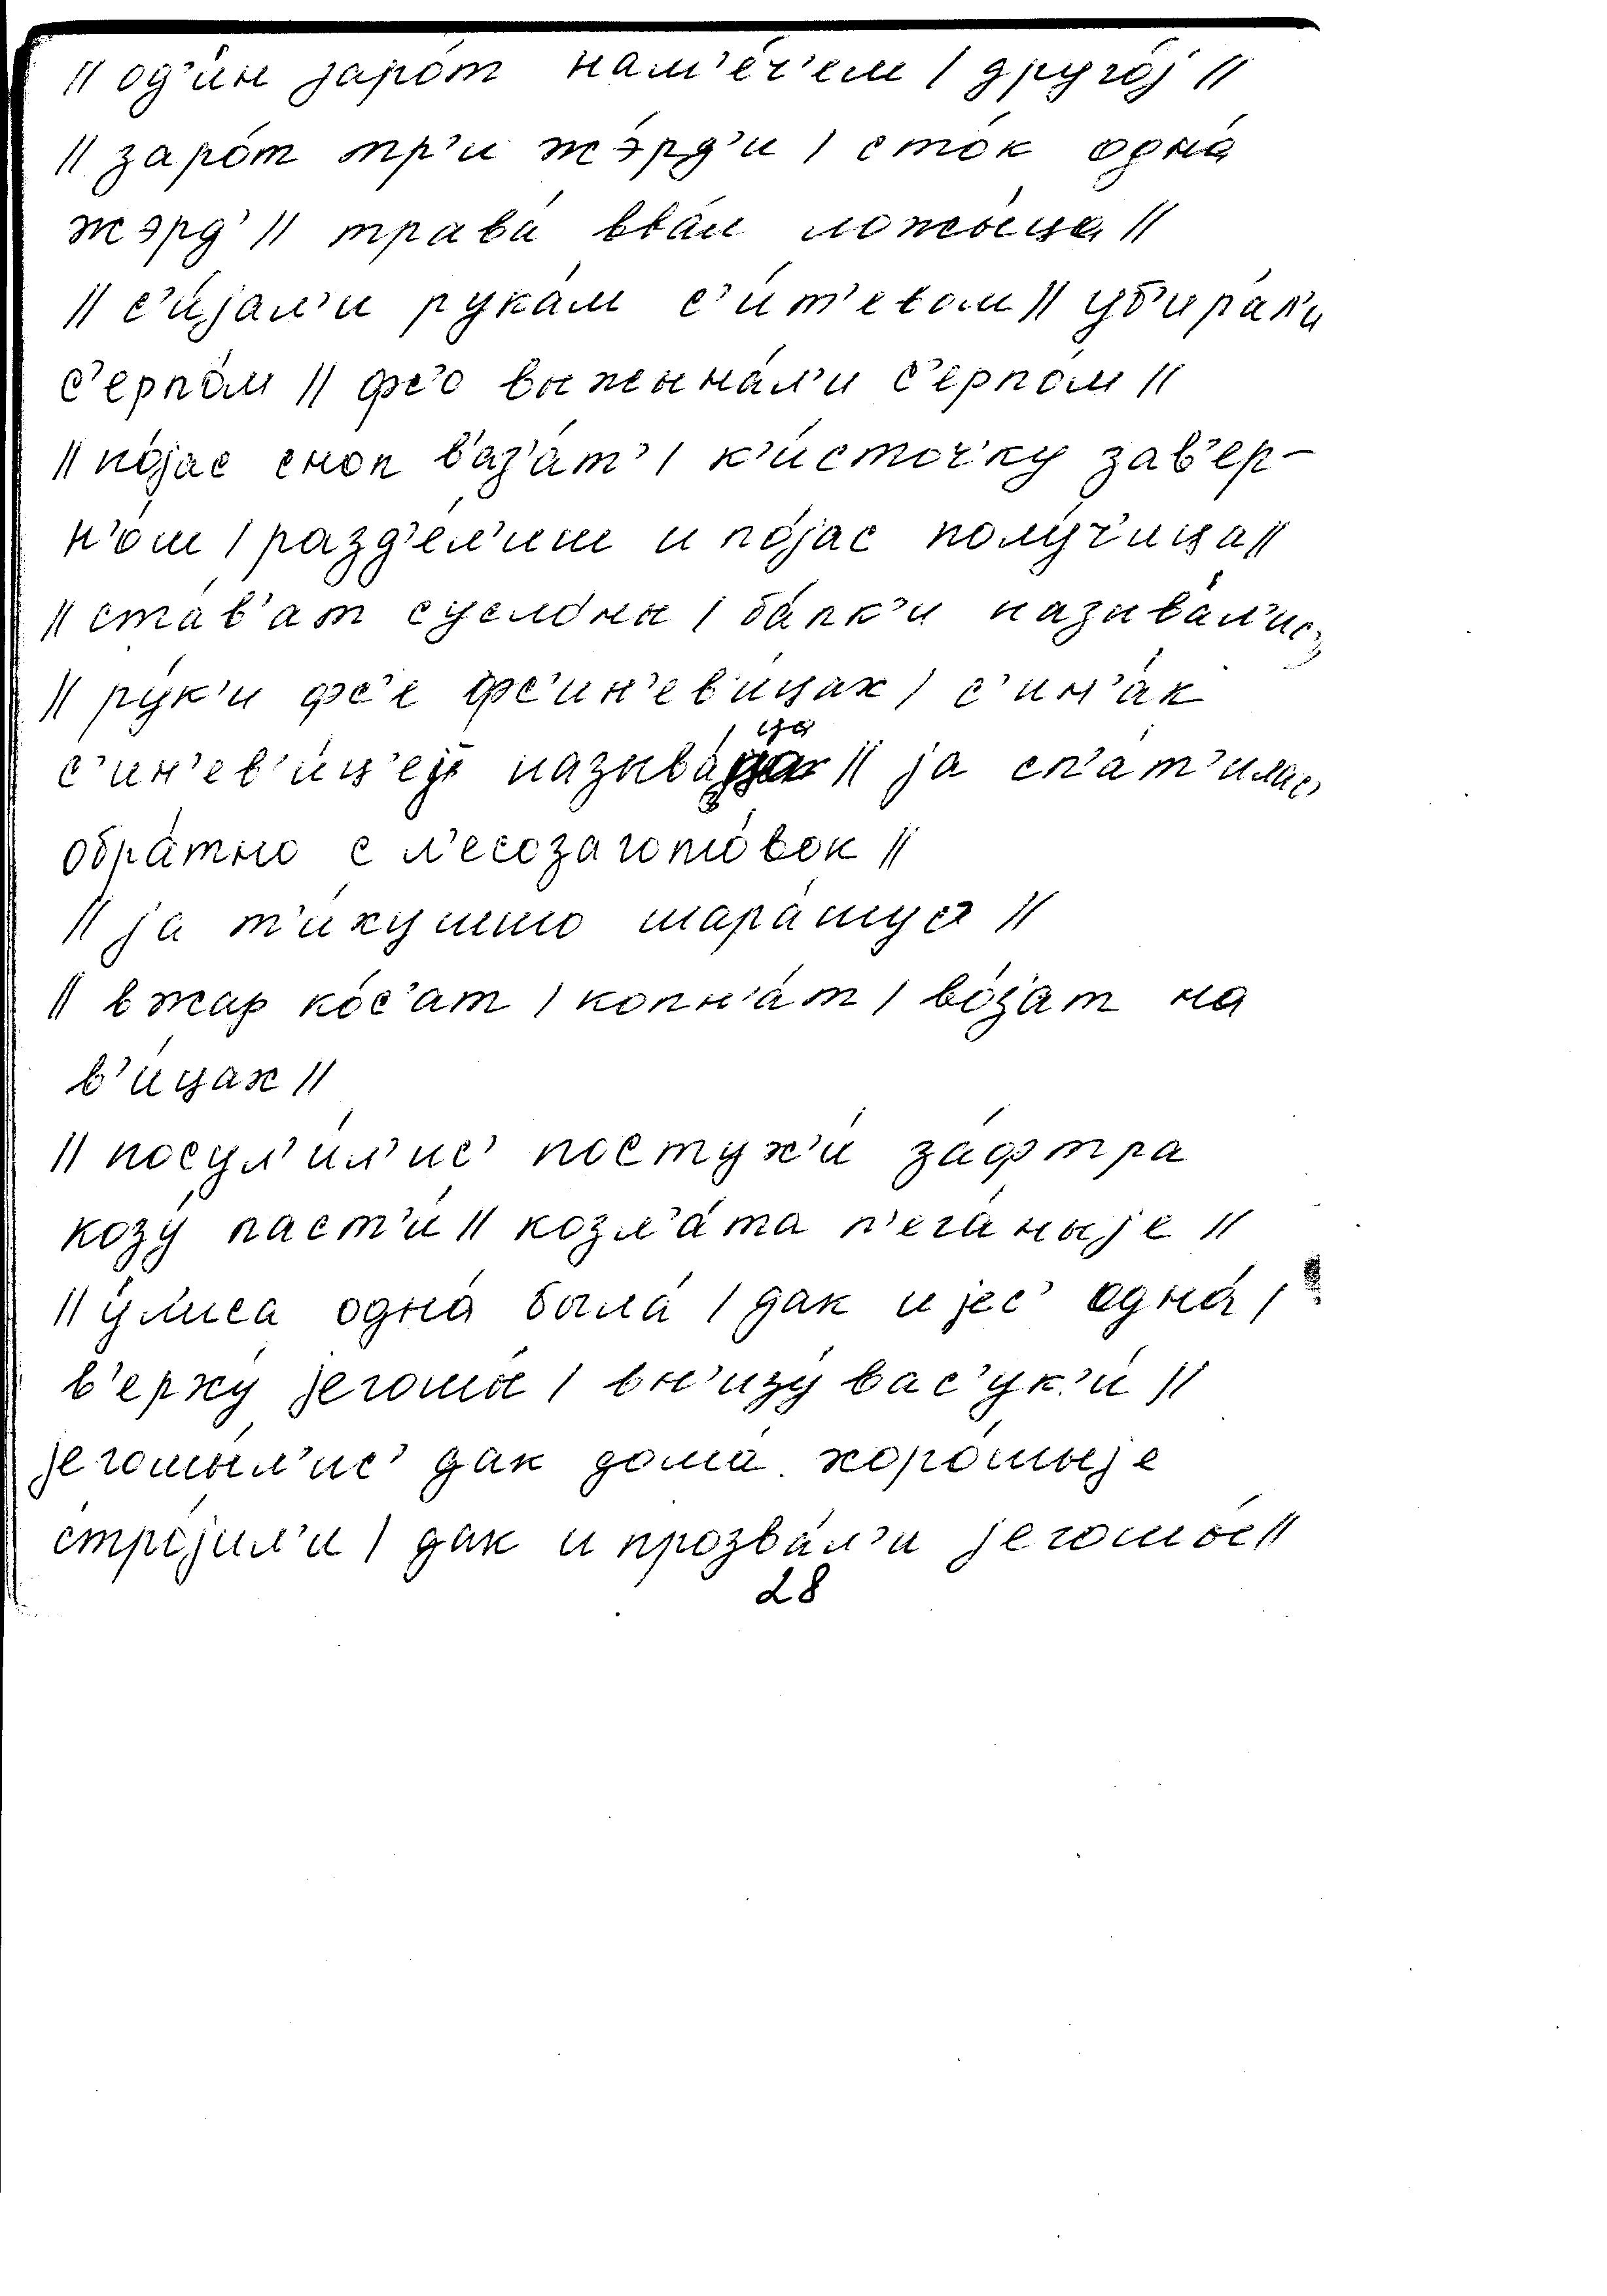 // од’и́н jаро́т нам’е́ч’ем / друго́j //
// заро́т тр’и жэ́рд’и / сто́к одна́
жэрд’ // трава́ вва́л ложы́ца //
// с’и́jал’и рука́м с’и́т’евом // уб’ира́л’и
с’ерпо́м // фс’о выжына́л’и с’ерпо́м //
// по́jас сноп в’аз’а́т’ / к’и́сточ’ку зав’ер-
н’о́ш / разд’е́л’иш и по́jас полу́ч’ица //
// ста́в’ат сусло́ны / ба́пк’и называ́л’ис’
// ру́к’и фс’е фс’ин’ев’и́цах / с’ин’а́к
с’ин’ев’и́ц’еj называ́ца // jа сп’а́т’илас’
обра́тно с л’есозагото́вок //
// jа т’и́хушшо шара́шус’ //
// вжар ко́с’ат / копн’а́т / во́з’ат на
в’и́цах //
// посул’и́л’ис’ постух’и́ за́фтра
козу́ паст’и́ // козл’а́та п’ега́ныjе //
// у́лиса одна́ была́ / дак и jес’ одна́ /
в’ерху́ jегошы́ / вн’изу́ вас’ук’и́ //
jегошы́л’ис’ дак дома́ хоро́шыjе
стро́jил’и / дак и прозва́л’и jегошы́ //
28